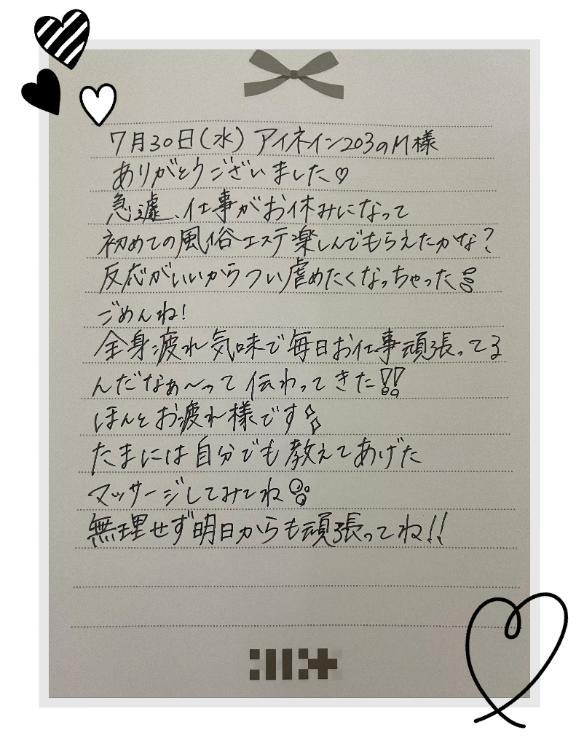 7月30日(水) アイネイン203のM様
ありがとうございました♡
急遽、仕事がお休みになって
初めての風俗エステ楽しんでもらえたかな?
反応がいいからつい虐めたくなっちゃった
ごめんね!
全身疲れ気味で毎日お仕事頑張ってる
んだなぁ〜って伝わってきた!!
ほんとお疲れ様です
たまには自分でも教えてあげた
マッサージしてみてね
無理せず明日からも頑張ってね!!